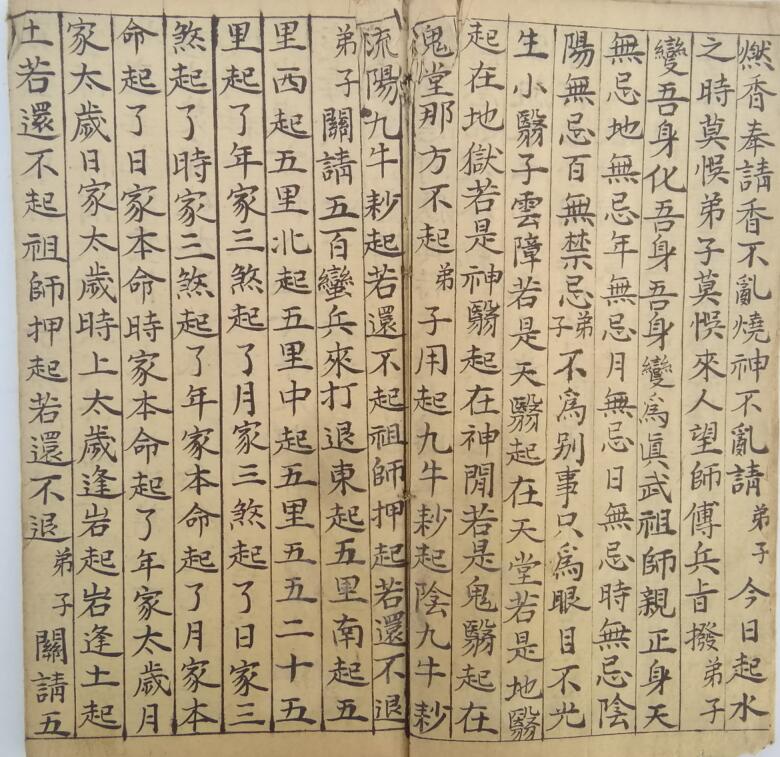 燃香奉請香不亂燒神不亂請弟子今日起水
之時莫悞弟子莫悞來人望師傅兵旨撥弟子
變吾身化吾身吾身變爲眞武祖師親正身天
無忌地無忌年無忌月無忌日無忌時無忌陰
陽無忌百無禁忌弟子不爲别事只爲眼目不光
生小翳子雲障若是天翳起在天堂若是地翳
起在地獄若是神翳起在神閒若是鬼翳起在
鬼堂那方不起弟子用起九牛耖起陰九牛耖
流陽九牛耖起若還不起祖師押起若還不退
弟子關請五百蠻兵來打退東起五里南起五
里西起五里北起五里中起五里五五二十五
里起了年家三煞起了月家三煞起了日家三
煞起了時家三煞起了年家本命起了月家本
命起了日家本命時家本命起了年家太歲月
家太歲日家太歲時上太歲逢岩起岩逢土起
土若還不起祖師押起若還不退弟子關請五